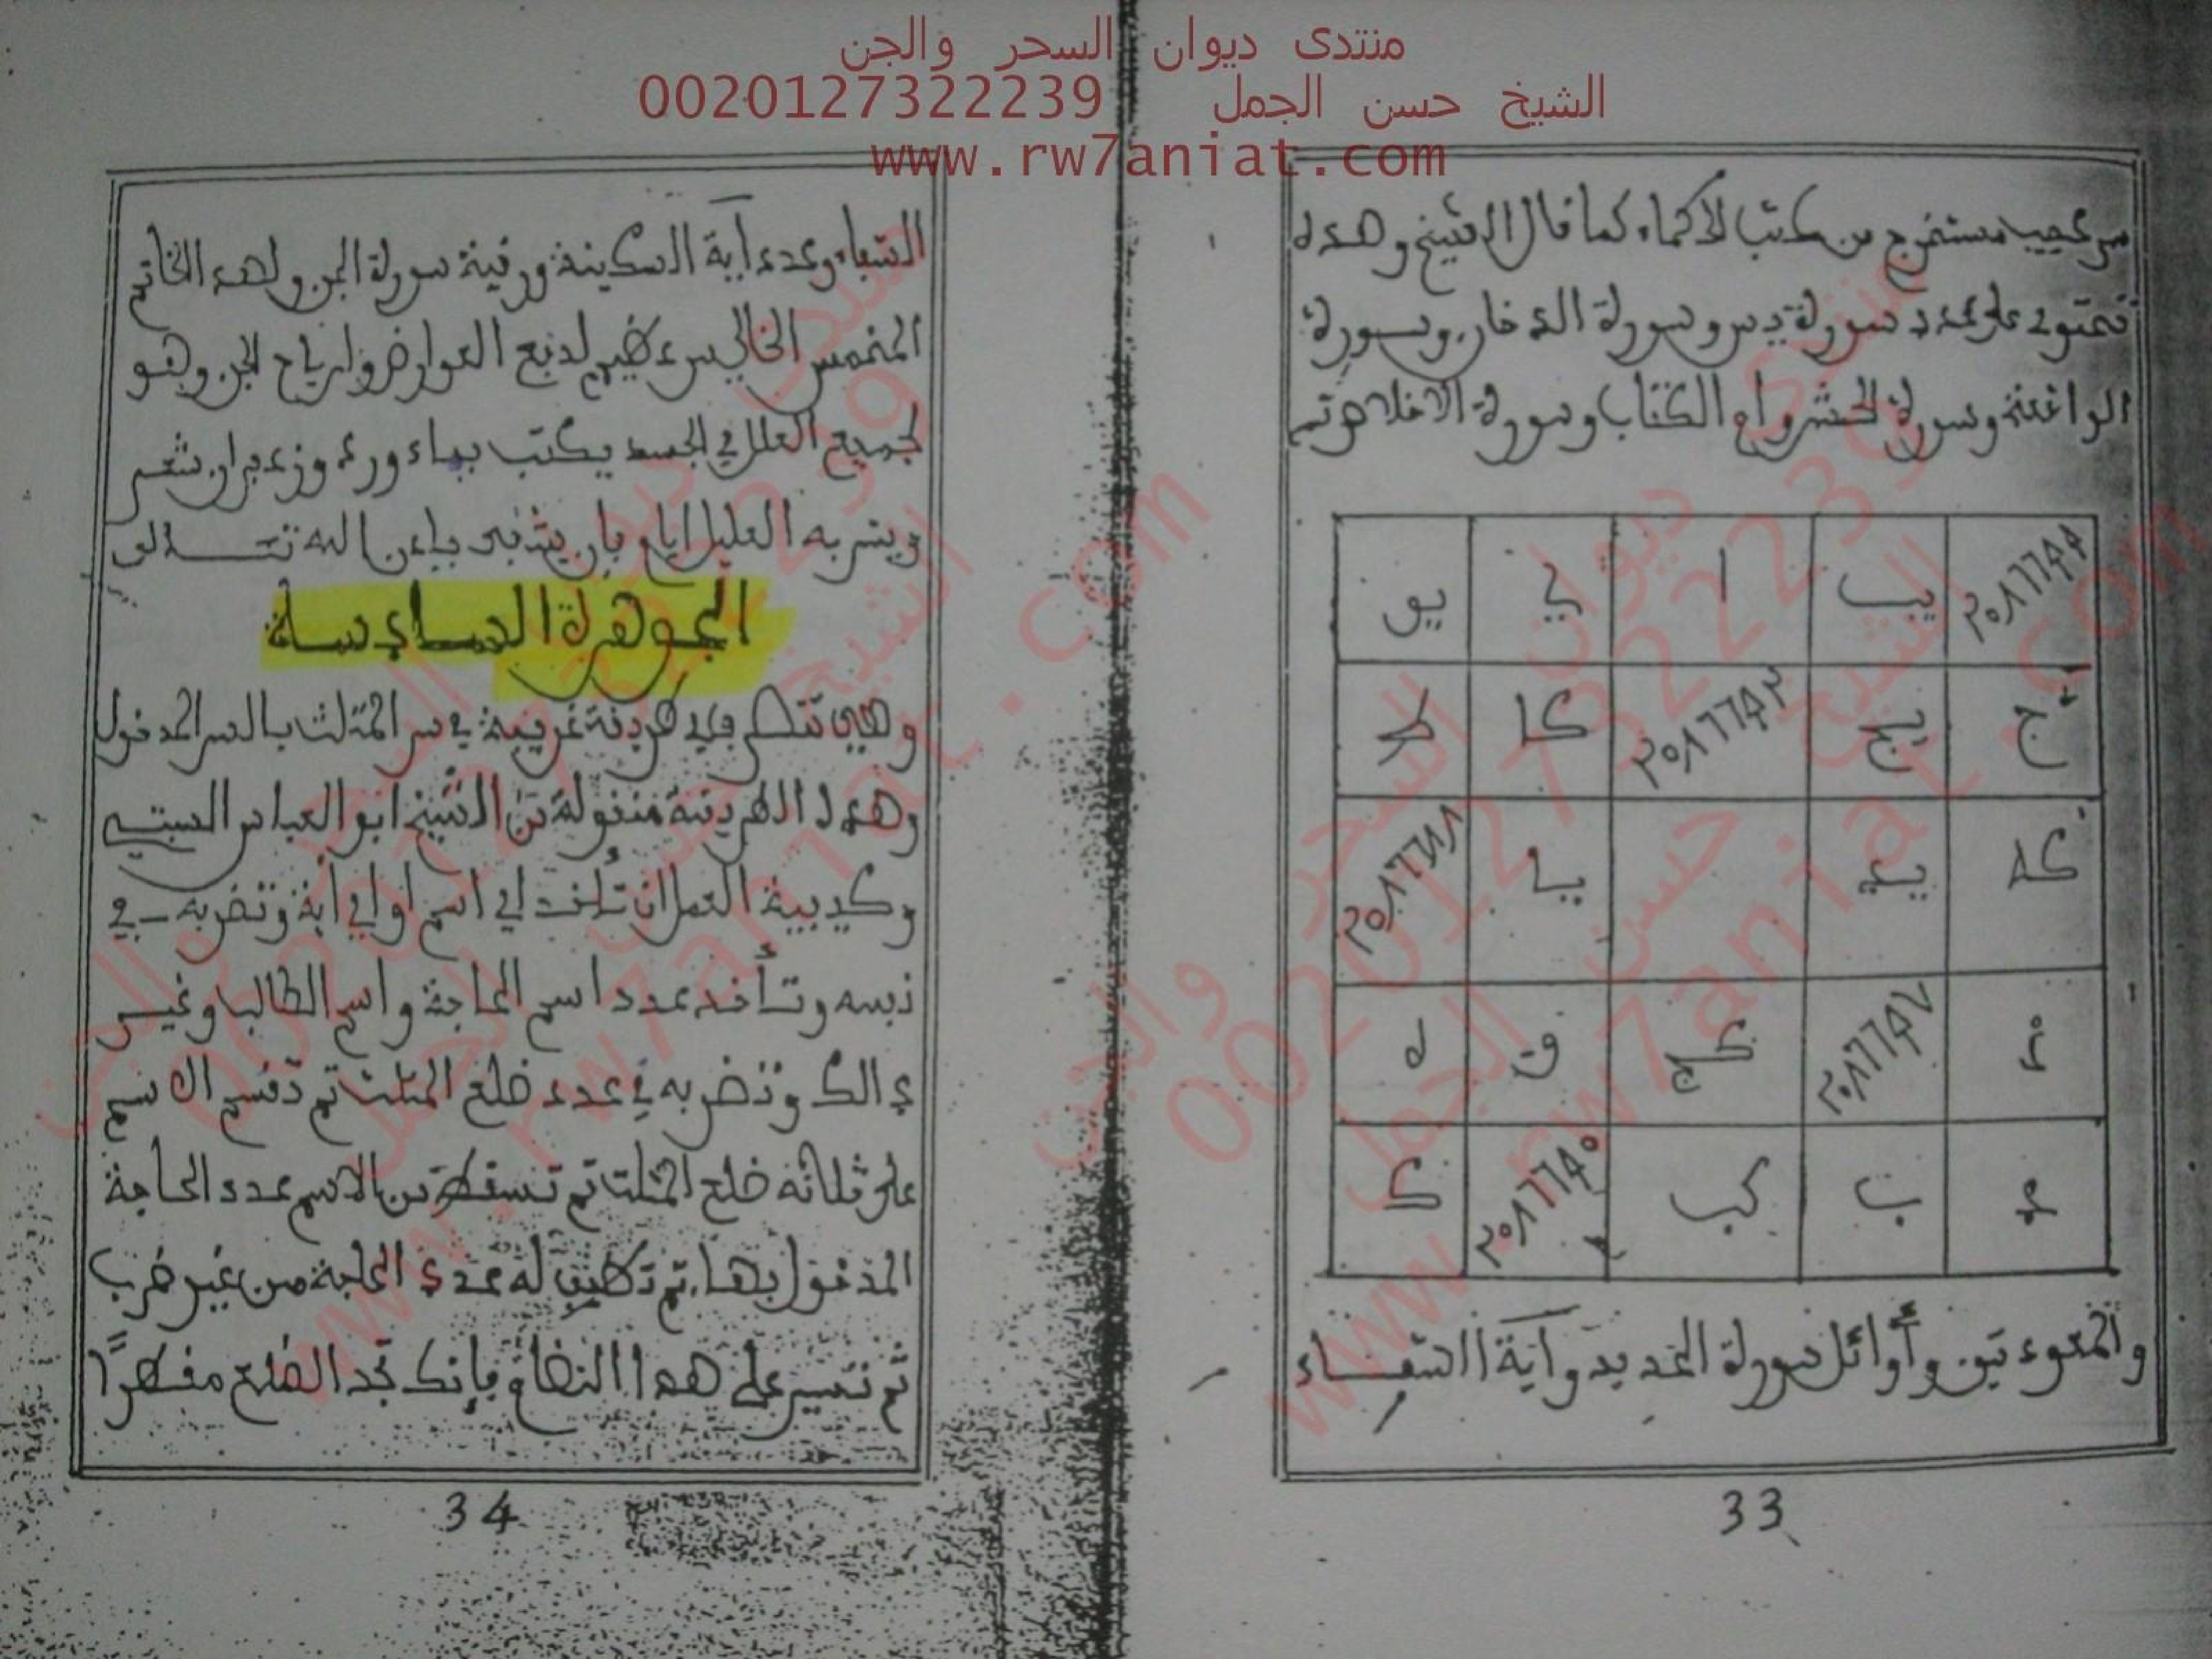 منتدى ديوان السحر والجن
الشيخ حسن الجمل 0020127322239
www.rw7aniat.com
سر عجيب مستخرج من كتب لأكماء كما قال الشيخ وهذه
تحتوي على عدد سورة يس وسورة الدخان وسورة
الواقعة وسورة الحشر وأم الكتاب وسورة الاخلاص تم
٢٠٨٦٦٩٩ يب ا ك يو
ج يج ٢٠٨٦٦٩٣ كا
كد يد يا ٢٠٨٦٦٨٨
٢٠٨٦٦٩٧ كج ق ه
ب كب ٢٠٨٦٦٩٥ ك
والمعوذتين وأوائل سورة الحديد وآية الشفاء
33
الشفاء وعدد آية السكينة ورقية سورة الجن ولهذه الخاتم
المخمس الخالي سر عظيم لدفع العوارض وارياح الجن وهو
لجميع العلل في الجسد يكتب بماء ورد وزعفران شعر
ويشربه العليل ايام فإن يشفى بإذن الله تعالى
الجوهرة السادسة
وهي تتطرق طريقة غريبة في سر المثلث بالسر المدخول
وهذه الطريقة منقولة من الشيخ ابو العباس السبتي
وكيفية العمل ان تأخذ اي اسم او اي آية وتضربه في
نفسه وتأخذ عدد اسم الحاجة واسم الطالب وغير
ذالك وتضربه في عدد ضلع المثلث تم تقسم الاسم
على ثلاثة ضلع المثلث تم تسقط من الاسم عدد الحاجة
المدخول بها. تم تظيف له عدد الحاجة من غير ضرب
تم تسير على هذا النظام فإنك تجد الضلع مفطرًا
34